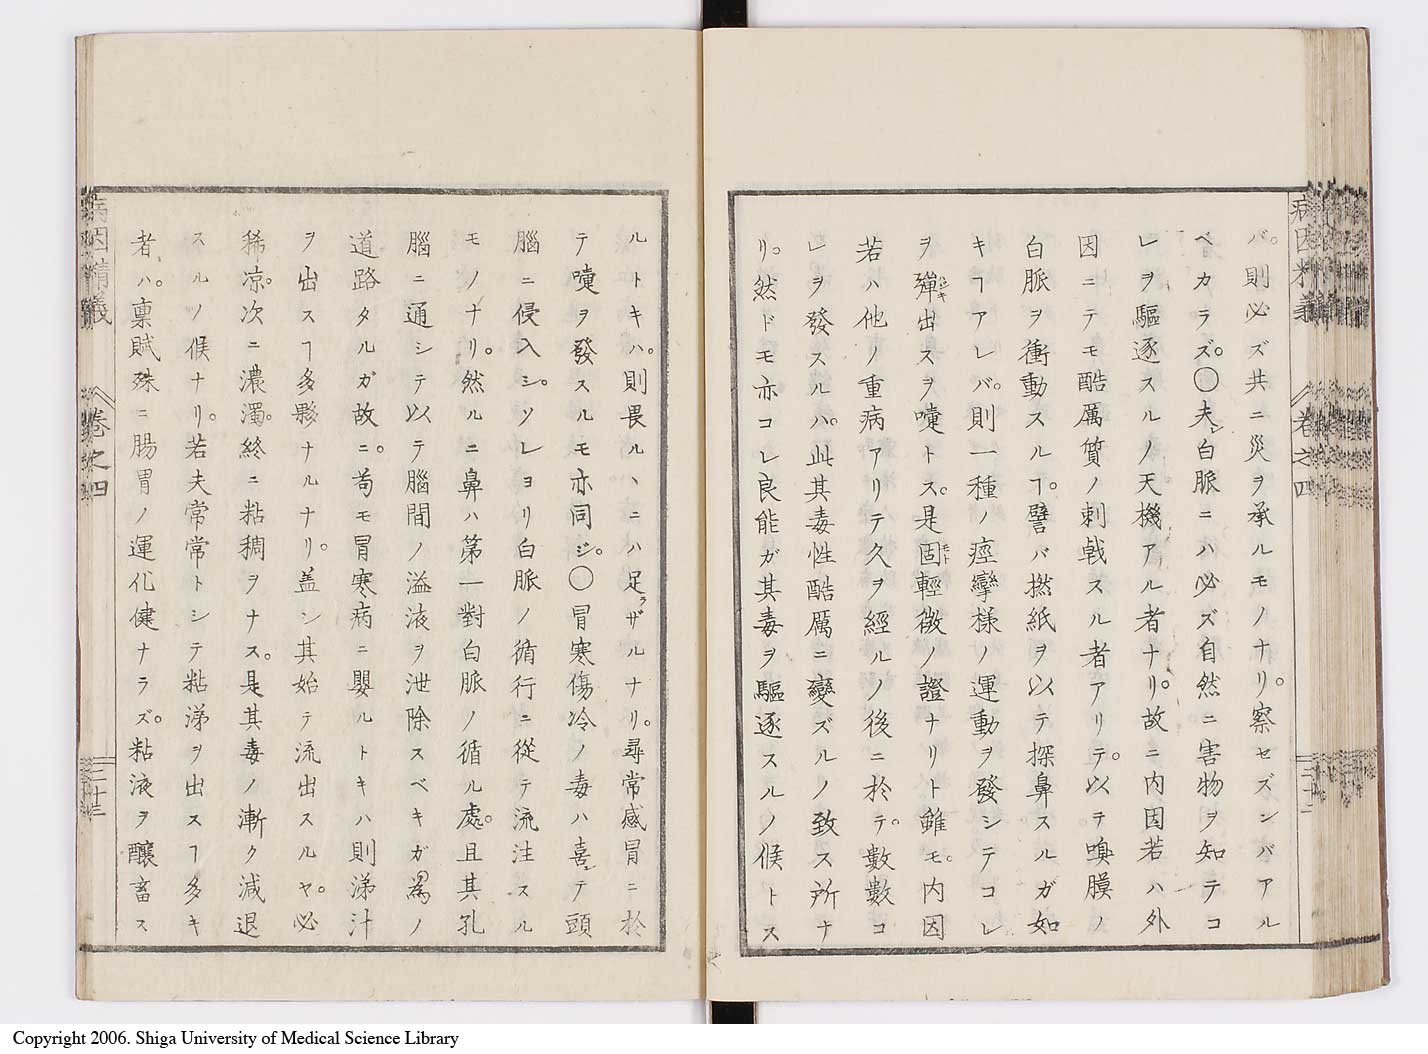 バ。則必ズ共ニ災ヲ承ルモノナリ。察セズンバアル
ベカラズ。〇夫レ白脈ニハ必ズ自然ニ害物ヲ知テコ
レヲ驅逐スルノ天機アル者ナリ。故ニ内因若ハ外
因ニテモ酷厲質ノ刺戟スル者アリテ。以テ嗅膜ノ
白脈ヲ衝動スルヿ。譬バ撚紙ヲ以テ探鼻スルガ如
キヿアレバ。則一種ノ痙攣様ノ運動ヲ發シテコレ
ヲ彈出スヲ嚏トス。是固輕微ノ證ナリト雖モ。内因
若ハ他ノ重病アリテ久ヲ經ルノ後ニ於テ。數數コ
レヲ發スルハ。此其毒性酷厲ニ變ズルノ致ス所ナ
リ。然ドモ亦コレ良能ガ其毒ヲ驅逐スルノ候トス
病因精義
卷之四
ルトキハ。則畏ルヽニハ足ラザルナリ。尋常感冒ニ於
テ嚏ヲ發スルモ亦同ジ。〇冒寒傷冷ノ毒ハ喜テ頭
腦ニ侵入シ。ソレヨリ白脈ノ循行ニ從テ流注スル
モノナリ。然ルニ鼻ハ第一對白脈ノ循ル處。且其孔
腦ニ通シテ以テ腦間ノ溢液ヲ泄除スベキガ爲ノ
道路タルガ故ニ。苟モ冒寒病ニ嬰ルトキハ則涕汁
ヲ出スヿ多夥ナルナリ。盖シ其始テ流出スルヤ。必
稀凉。次ニ濃濁。終ニ粘稠ヲナス。是其毒ノ漸ク減退
スルノ候ナリ。若夫常常トシテ粘涕ヲ出スヿ多キ
者ハ。稟賦殊ニ腸胃ノ運化健ナラズ。粘液ヲ釀畜ス
病因精義
卷之四
二十三
Copyright 2006. Shiga University of Medical Science Library